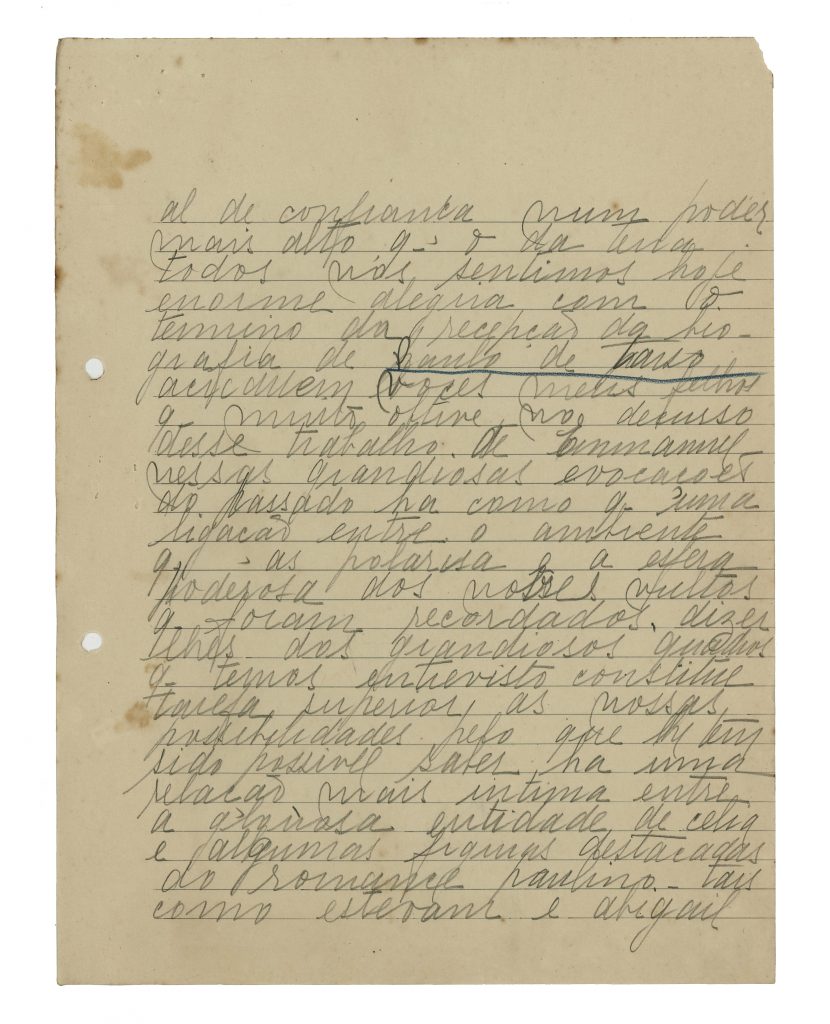 al de confiança num poder
mais alto q- o da terra.
todos nós sentimos hoje
enorme alegria com o
termino da recepção da bio-
grafia de Paulo de Tarso
acreditem voces meus filhos
q- muito otive no decurso
desse trabalho de Emmanuel
nessas grandiosas evocações
do passado ha como q- uma
ligação entre o ambiente
q- as polarisa e a esfera
poderosa dos nobres vultos
q- foram recordados. dizer
lhes dos grandiosos quadros
q- temos entrevisto constitue
tarefa superior as nossas
possibilidades pelo que me tem
sido possivel saber ha uma
relacão mais intima entre
a entidade de celia
e algumas figuras destacadas
do romance paulino - tais
como estevam e abigail